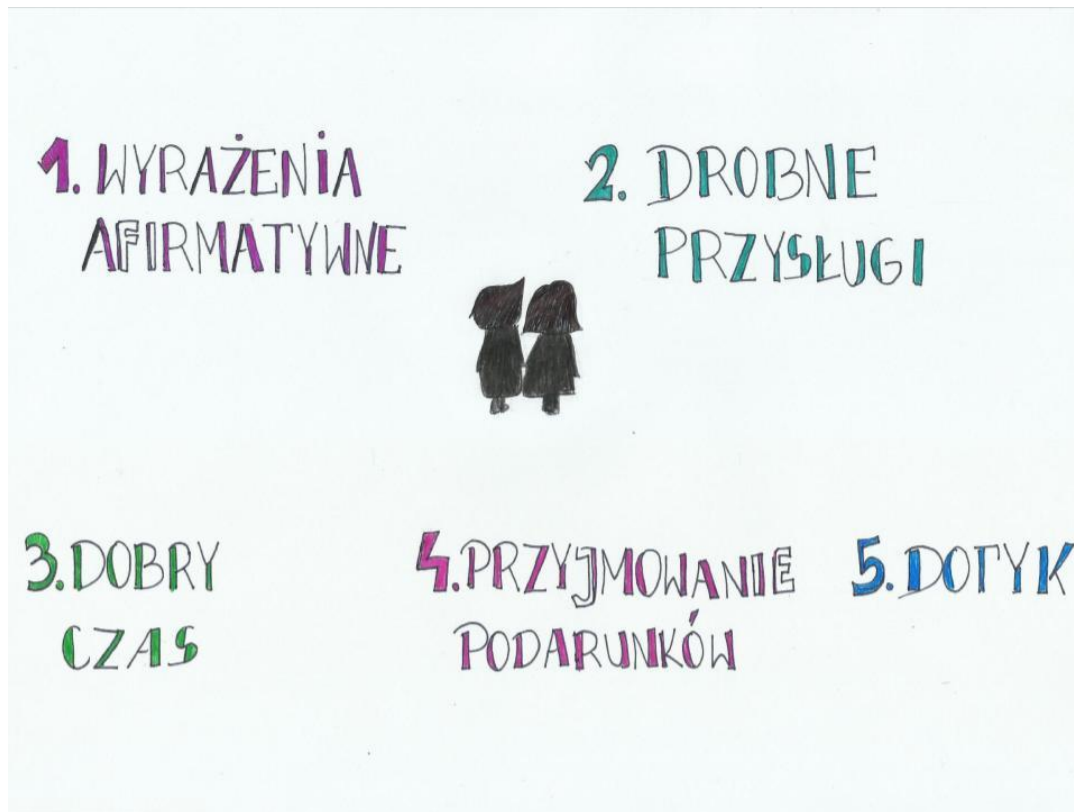 1. WYRAŻENIA
AFIRMATYWNE
2. DROBNE
PRZYSŁUGI
3. DOBRY
CZAS
4. PRZYJMOWANIE
PODARUNKÓW
5. DOTYK